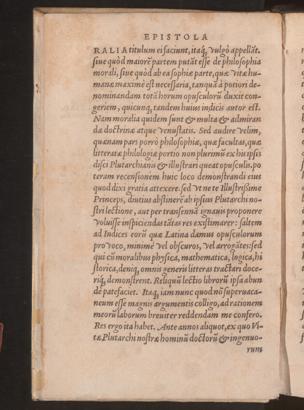 EPISTOLA
RALIA titulum ei faciunt, itaq; vulgò appellãt.
siue quòd maiorẽ partem putãt esse de philosophia
morali, siue quòd ab ea sophiæ parte, quæ vitæ hu-
manæ maximè est necessaria, tanquã à potiori de-
nominandam totã horum opusculorũ duxit con-
geriem, quicunq; tandem huius indicis autor est.
Nam moralia quidem sunt & multa & admiran
da doctrinæ atque venustatis. Sed audire velim,
quænam pars porrò philosophiæ, quæ facultas, quæ
litteratæ philologiæ portio non plurimũ ex his ipsis
disci Plutarchiana & illustrari queat opusculis. po
teram recensionem huic loco demonstrandi eius
quod dixi gratia attexere. sed vt ne te Illustrissime
Princeps, diutius abstinerẽ ab ipsius Plutarchi no-
stri lectione, aut per transennã ignauis proponere
voluisse inspiciendas tãtas res existimarer: saltem
ad Indices eorũ quæ Latina damus opusculorum
prouoco, minimè vel obscuros, vel arrogãtes: sed
qui cũ moralibus physica, mathematica, logica, hi
storica, deniq; omnis generis litteras tractari doce-
rẽt, demonstrent. Reliquũ lectio librorũ ipsa abun
dè patefaciet. Itaq; iam nunc quod nõ superuaca-
neum esse magnis argumentis colligo, ad rationem
meorũ laborum breuiter reddendam me confero.
Res ergo ita habet. Ante annos aliquot, ex quo Vi-
tæ Plutarchi nostræ hominũ doctorũ & ingenuo-
rum